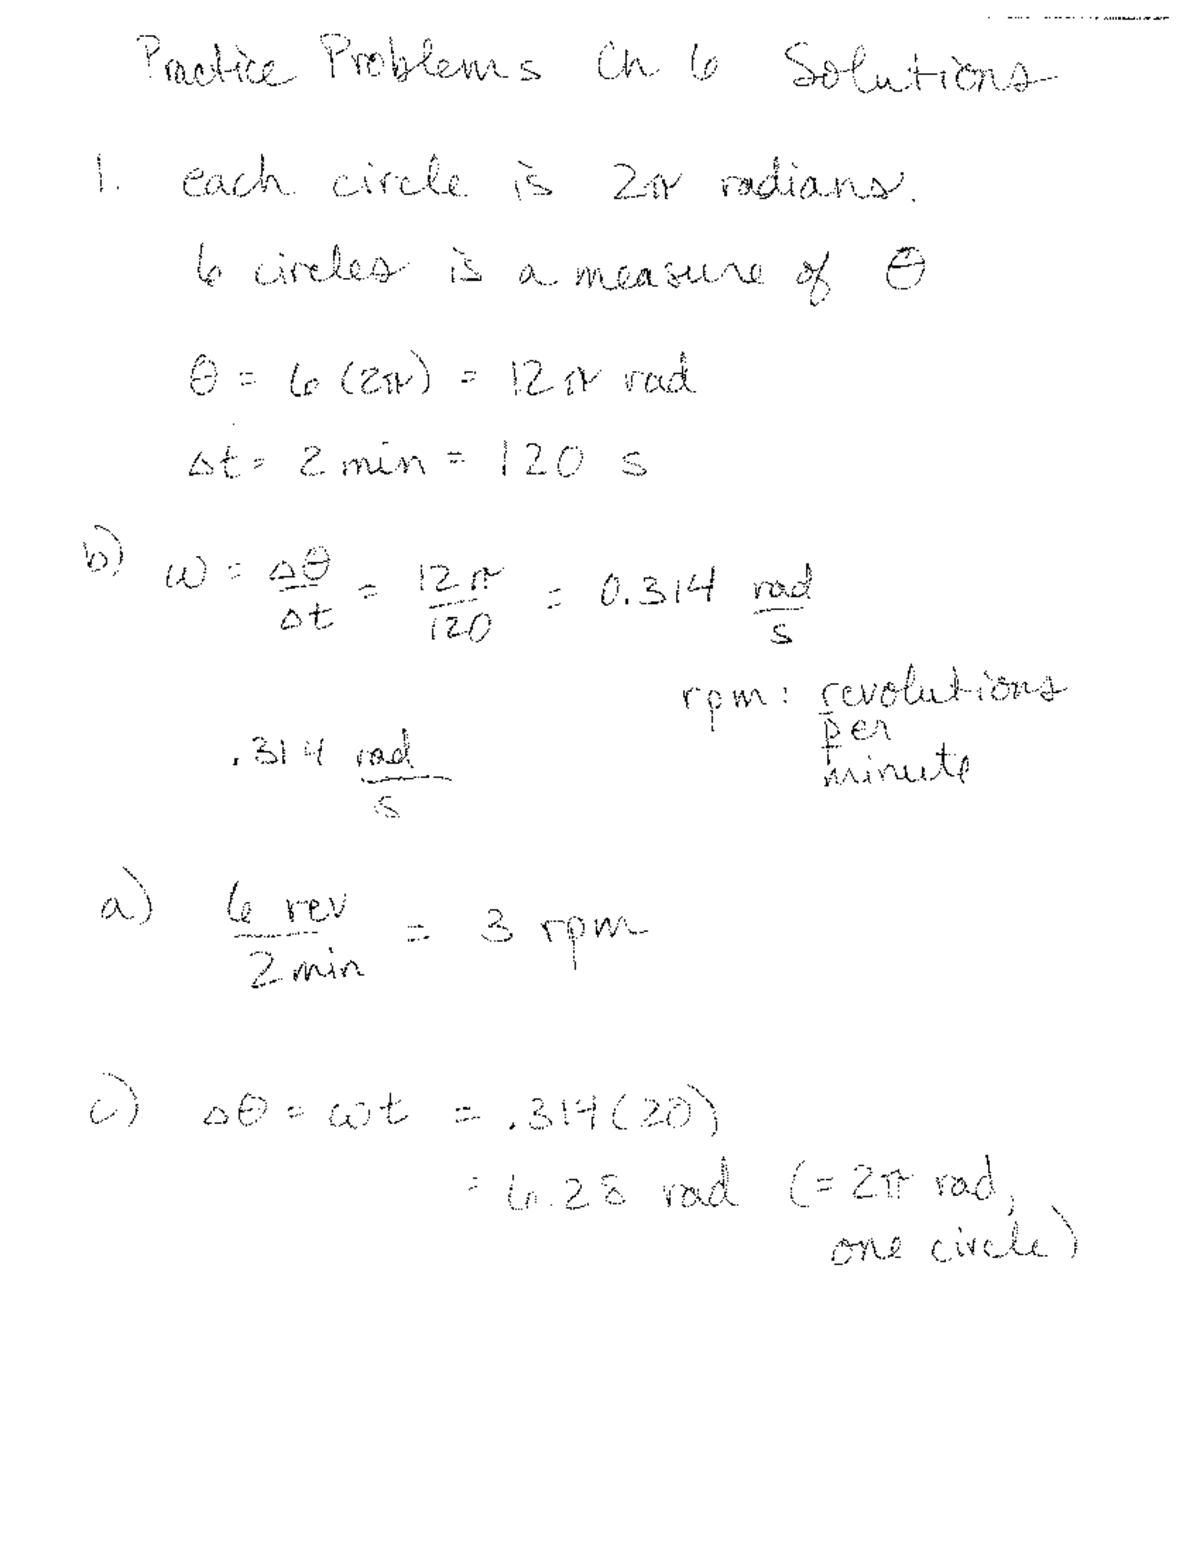 Practice Problems Ch 6 Solutions
1. each circle is 2π radians.
6 circles is a measure of θ
θ = 6 (2π) = 12π rad
Δt = 2 min = 120 s
b) ω = Δθ/Δt = 12π/120 = 0.314 rad/s
rpm: revolutions
per
minute
.314 rad/s
a) 6 rev/2 min = 3 rpm
c) Δθ = ωt = .314(20)
= 6.28 rad (= 2π rad,
one circle)